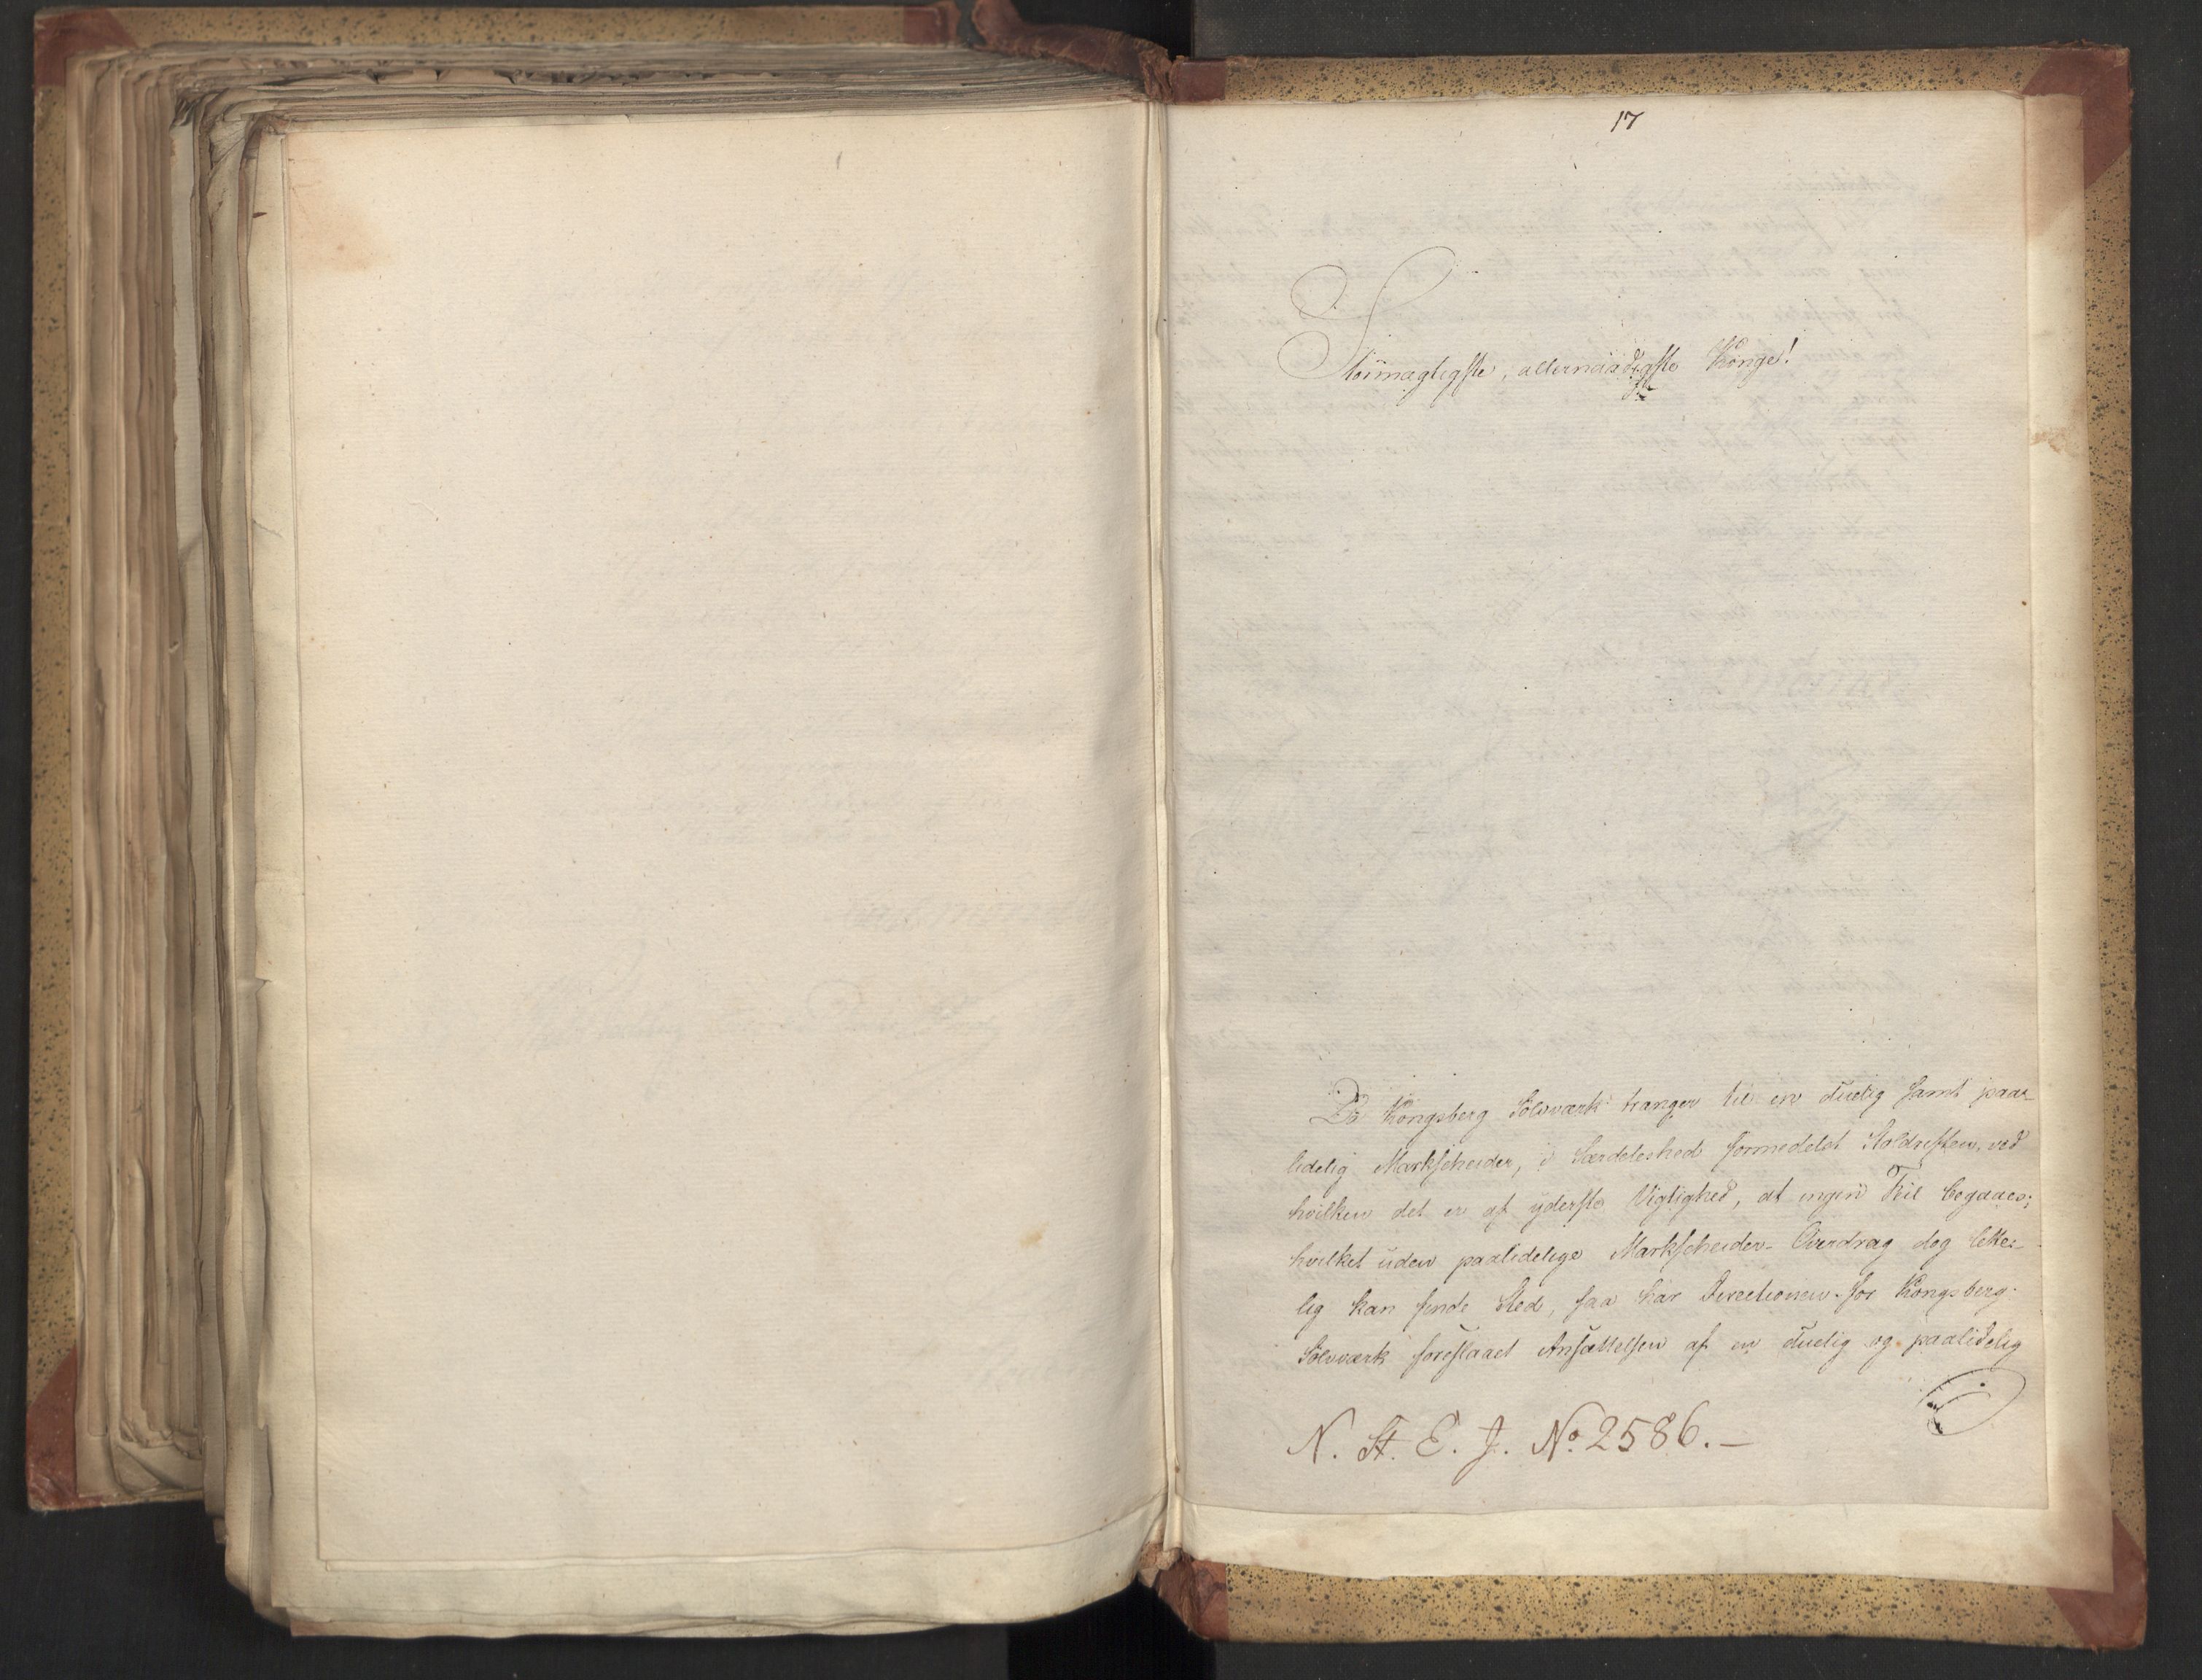 17
Stormægtigste, allernaadigste Konge!
Da Kongsberg Sølvværk trænger til en duelig samt paa-
lidelig Markscheider, i Særdeleshed formedelst Stoldriften, ved
hvilken det er af yderste Vigtighed, at ingen Feil begaaes;
hvilket uden paalidelige Markscheider-Overdrag dog lette-
lig kan finde Sted, saa har Directionen for Kongsberg
Sølvværk foreslaaet Ansættelsen af en duelig og paalidelig
N. St. E. J. No 2586.-